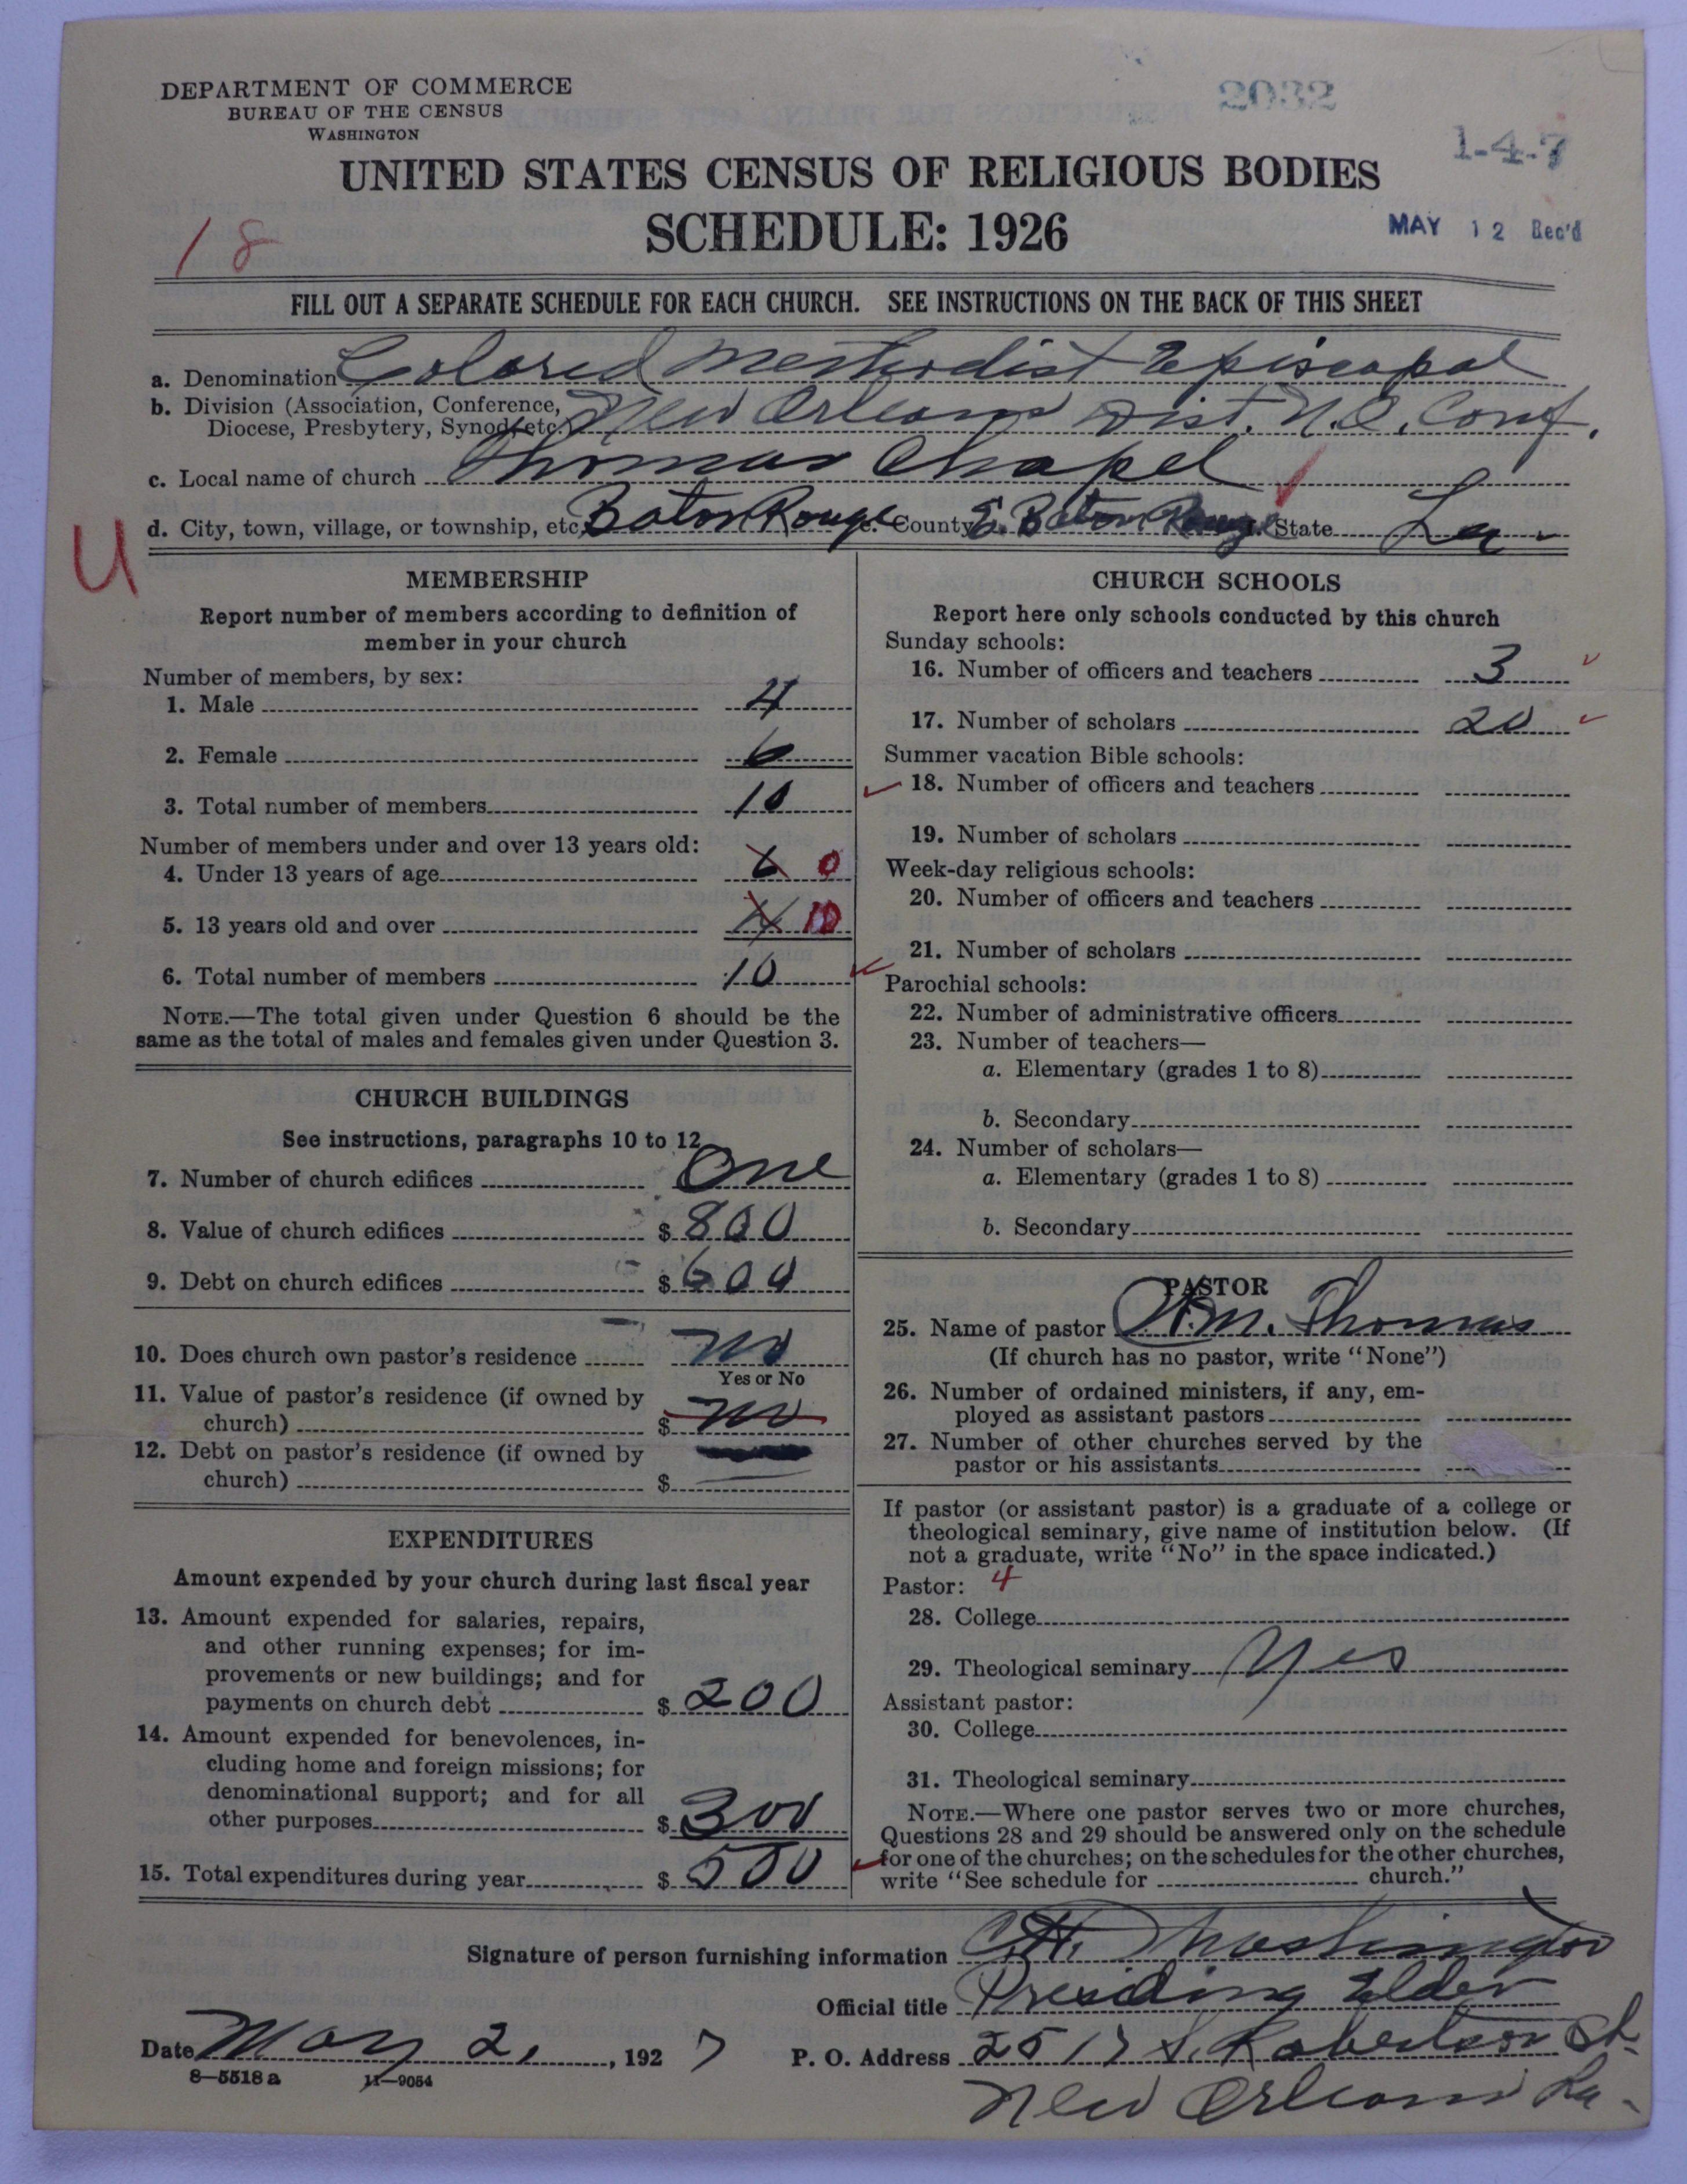 DEPARTMENT OF COMMERCE
BUREAU OF THE CENSUS
WASHINGTON
2032
1-4-7
UNITED STATES CENSUS OF RELIGIOUS BODIES
SCHEDULE: 1926
MAY 12 Rec'd
18
FILL OUT A SEPARATE SCHEDULE FOR EACH CHURCH. SEE INSTRUCTIONS ON THE BACK OF THIS SHEET
a. Denomination Colored Methodist Episcopal
b. Division (Association, Conference, Diocese, Presbytery, Synod, etc.) New Orleans Dist. N.O. Conf.
c. Local name of church Thomas Chapel
d. City, town, village, or township, etc. Baton Rouge e. County E. Baton Rouge f. State La.
U
MEMBERSHIP
Report number of members according to definition of
member in your church
Number of members, by sex:
1. Male 4
2. Female 6
3. Total number of members 10
Number of members under and over 13 years old:
4. Under 13 years of age 6 0
5. 13 years old and over 4 10
6. Total number of members 10
NOTE.—The total given under Question 6 should be the
same as the total of males and females given under Question 3.
CHURCH BUILDINGS
See instructions, paragraphs 10 to 12
7. Number of church edifices One
8. Value of church edifices $ 800
9. Debt on church edifices $ 600
10. Does church own pastor's residence No
Yes or No
11. Value of pastor's residence (if owned by
church) $ No
12. Debt on pastor's residence (if owned by
church) $
EXPENDITURES
Amount expended by your church during last fiscal year
13. Amount expended for salaries, repairs,
and other running expenses; for im-
provements or new buildings; and for
payments on church debt $ 200
14. Amount expended for benevolences, in-
cluding home and foreign missions; for
denominational support; and for all
other purposes $ 300
15. Total expenditures during year $ 500
CHURCH SCHOOLS
Report here only schools conducted by this church
Sunday schools:
16. Number of officers and teachers 3
17. Number of scholars 20
Summer vacation Bible schools:
18. Number of officers and teachers
19. Number of scholars
Week-day religious schools:
20. Number of officers and teachers
21. Number of scholars
Parochial schools:
22. Number of administrative officers
23. Number of teachers—
a. Elementary (grades 1 to 8)
b. Secondary
24. Number of scholars—
a. Elementary (grades 1 to 8)
b. Secondary
PASTOR
25. Name of pastor Wm. Thomas
(If church has no pastor, write "None")
26. Number of ordained ministers, if any, em-
ployed as assistant pastors
27. Number of other churches served by the
pastor or his assistants
If pastor (or assistant pastor) is a graduate of a college or
theological seminary, give name of institution below. (If
not a graduate, write "No" in the space indicated.)
Pastor: 4
28. College
29. Theological seminary Yes
Assistant pastor:
30. College
31. Theological seminary
NOTE.—Where one pastor serves two or more churches,
Questions 28 and 29 should be answered only on the schedule
for one of the churches; on the schedules for the other churches,
write "See schedule for church."
Signature of person furnishing information Washington
Official title Presiding Elder
Date May 2, 1927 P. O. Address 2517 S. Robertson St.
8—5518a 11—9054
New Orleans La.